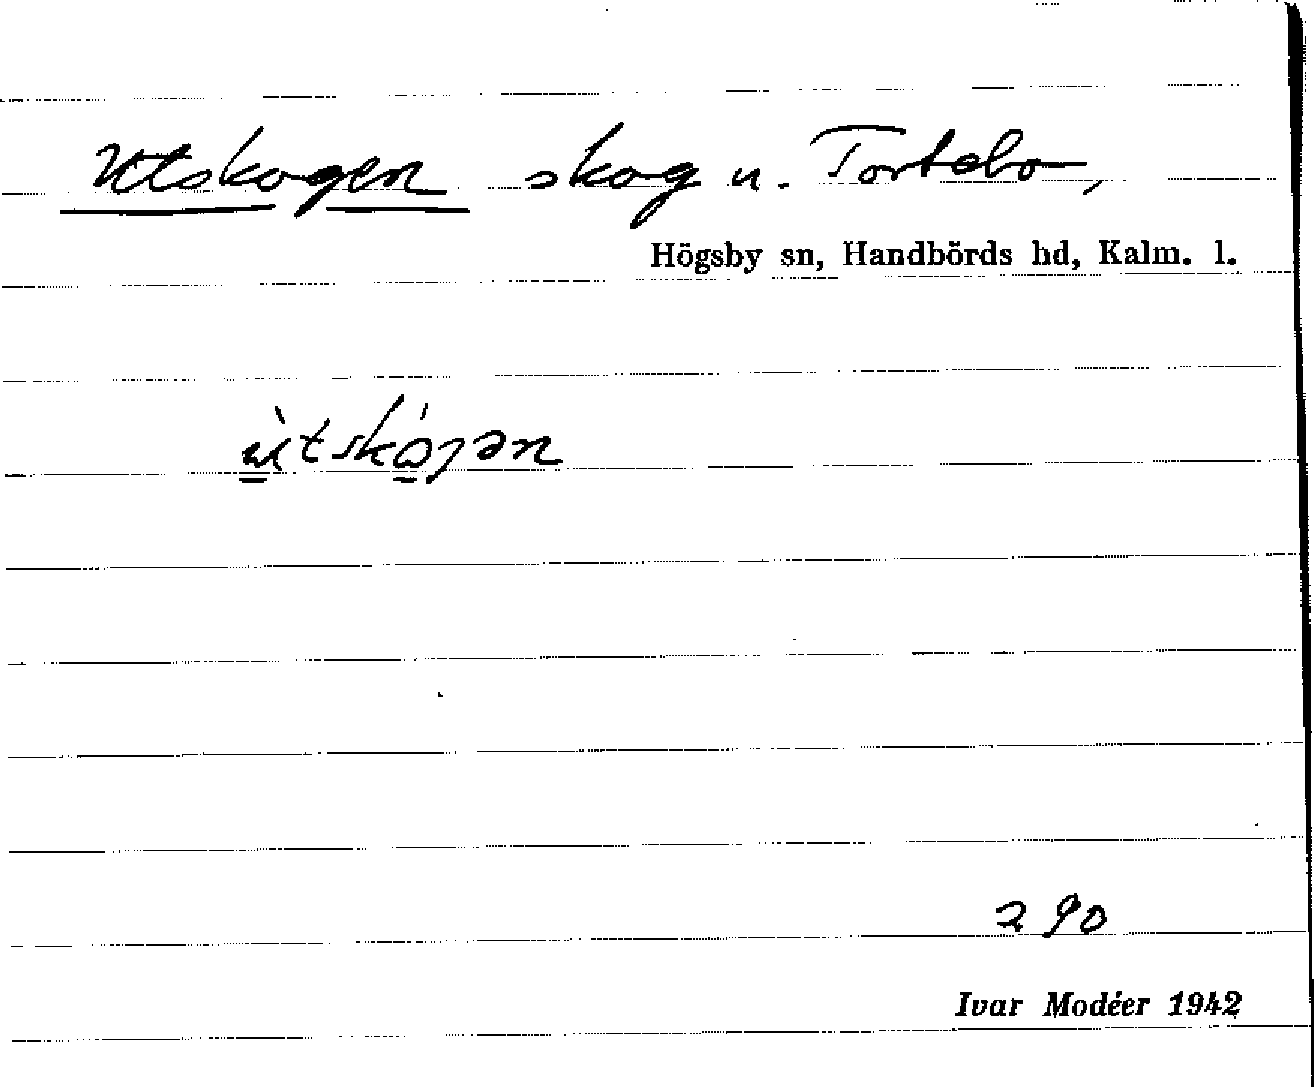 Utskogen skog u. Tortebo,
Högsby sn, Handbörds hd, Kalm. l.
ùtskójən
290
Ivar Modéer 1942